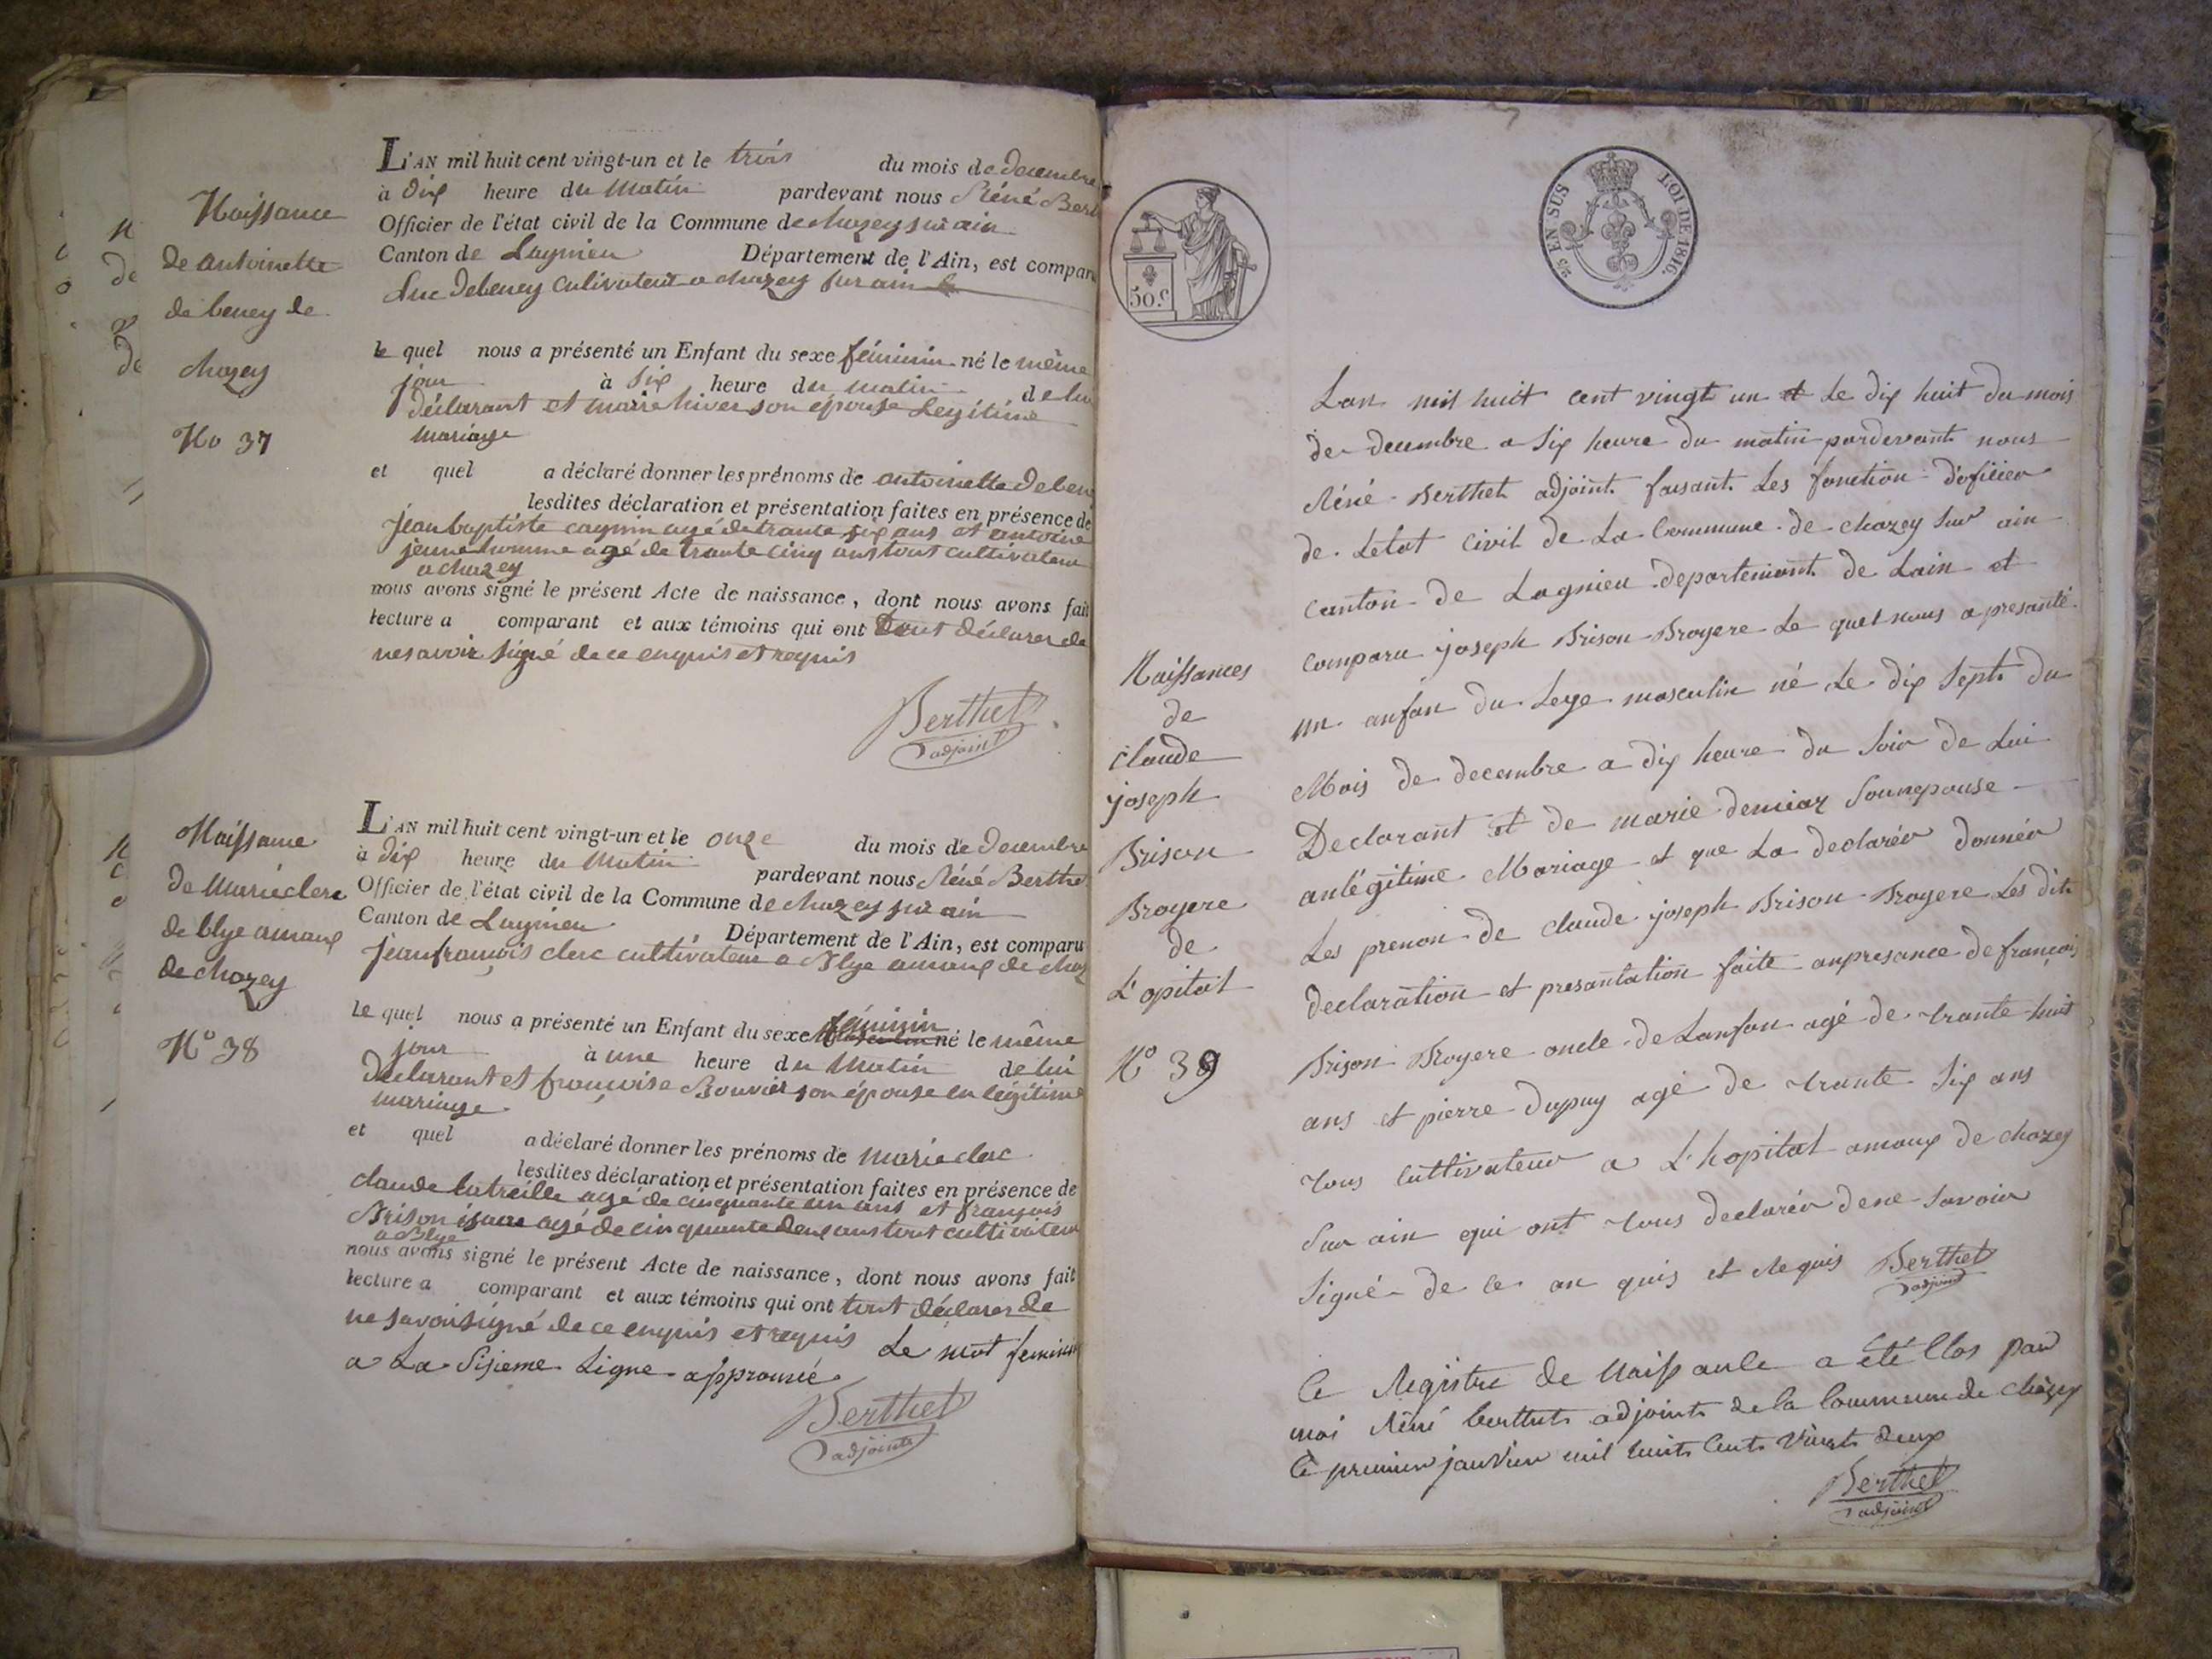 Naissance
de antoinette
de beney de
chazey
No 37
L'AN mil huit cent vingt-un et le trois du mois de decembre
à dix heure du matin pardevant nous Réné Bert
Officier de l'état civil de la Commune de chazey sur ain
Canton de Lagnieu Département de l'Ain, est compar
Luc debeney cultivateur a chazey sur ain
le quel nous a présenté un Enfant du sexe féminin né le même
jour à six heure du matin de lui
déclarant et marie hiver son épouse Legitime
mariage
et quel a déclaré donner les prénoms de antoinette deben
lesdites déclaration et présentation faites en présence de
jean baptiste caynin agé de trante six ans et antoine
jeune homme agé de trante cinq ans tout cultivateur
a chazey
nous avons signé le présent Acte de naissance, dont nous avons fait
lecture a comparant et aux témoins qui ont tout déclarer de
ne savoir signé de ce enquis et requis
Berthet
adjoint
Naissance
de marie clerc
de blye amaux
de chazey
N° 38
L'AN mil huit cent vingt-un et le onze du mois de decembre
à dix heure du matin pardevant nous Réné Berthe
Officier de l'état civil de la Commune de chazey sur ain
Canton de Lagnieu Département de l'Ain, est comparu
jean françois clerc cultivateur a Blye amaux de chaz
le quel nous a présenté un Enfant du sexe féminin né le même
jour à une heure du matin de lui
declarant et françoise Bouvier son épouse en légitime
mariage
et quel a déclaré donner les prénoms de marie clerc
lesdites déclaration et présentation faites en présence de
claude latreille agé de cinquante un ans et françois
Brison agé de cinquante deux ans tout cultivateur
a Blye
nous avons signé le présent Acte de naissance, dont nous avons fait
lecture a comparant et aux témoins qui ont tout déclarer de
ne savoir signé de ce enquis et requis Le mot feminin
a La Sisieme Ligne approuvé
Berthet
adjoint
50.c
25 EN SUS LOI DE 1816.
Naissances
de
claude
joseph
Brison
Broyere
de
L'opital
N° 39
Lan mil huit cent vingt un et Le dix huit du mois
de decembre a Six heure du matin pardevant nous
Réné Berthet adjoint faisant Les fonction d'oficier
de Letat civil de La Commune de chazey Sur ain
canton de Lagnieu departement de Lain et
comparu joseph Brison Broyere Le quel nous a presanté
un anfan du Sexe masculin né Le dix Sept du
Mois de decembre a dix heure du Soir de Lui
Declarant et de marie demiaz Sounepouse
anlégitime Mariage et que La declarér donnér
Les prenon de claude joseph Brison Broyere Les dit
declaration et presantation faite anpresance de françois
Brison Broyere oncle de Lanfan agé de trante huit
ans et pierre Dupuy agé de trante Six ans
tous cultivateur a L'hopital amaux de chazey
Sur ain qui ont tous declarér dene Savoir
Signé de ce an quis et Requis Berthet
adjoint
Ce Registre de Naissance a été Clos par
moi Réné berthet adjoint de la Commune de Chazey
le premier janvier mil huit Cent vingt deux
Berthet
adjoint